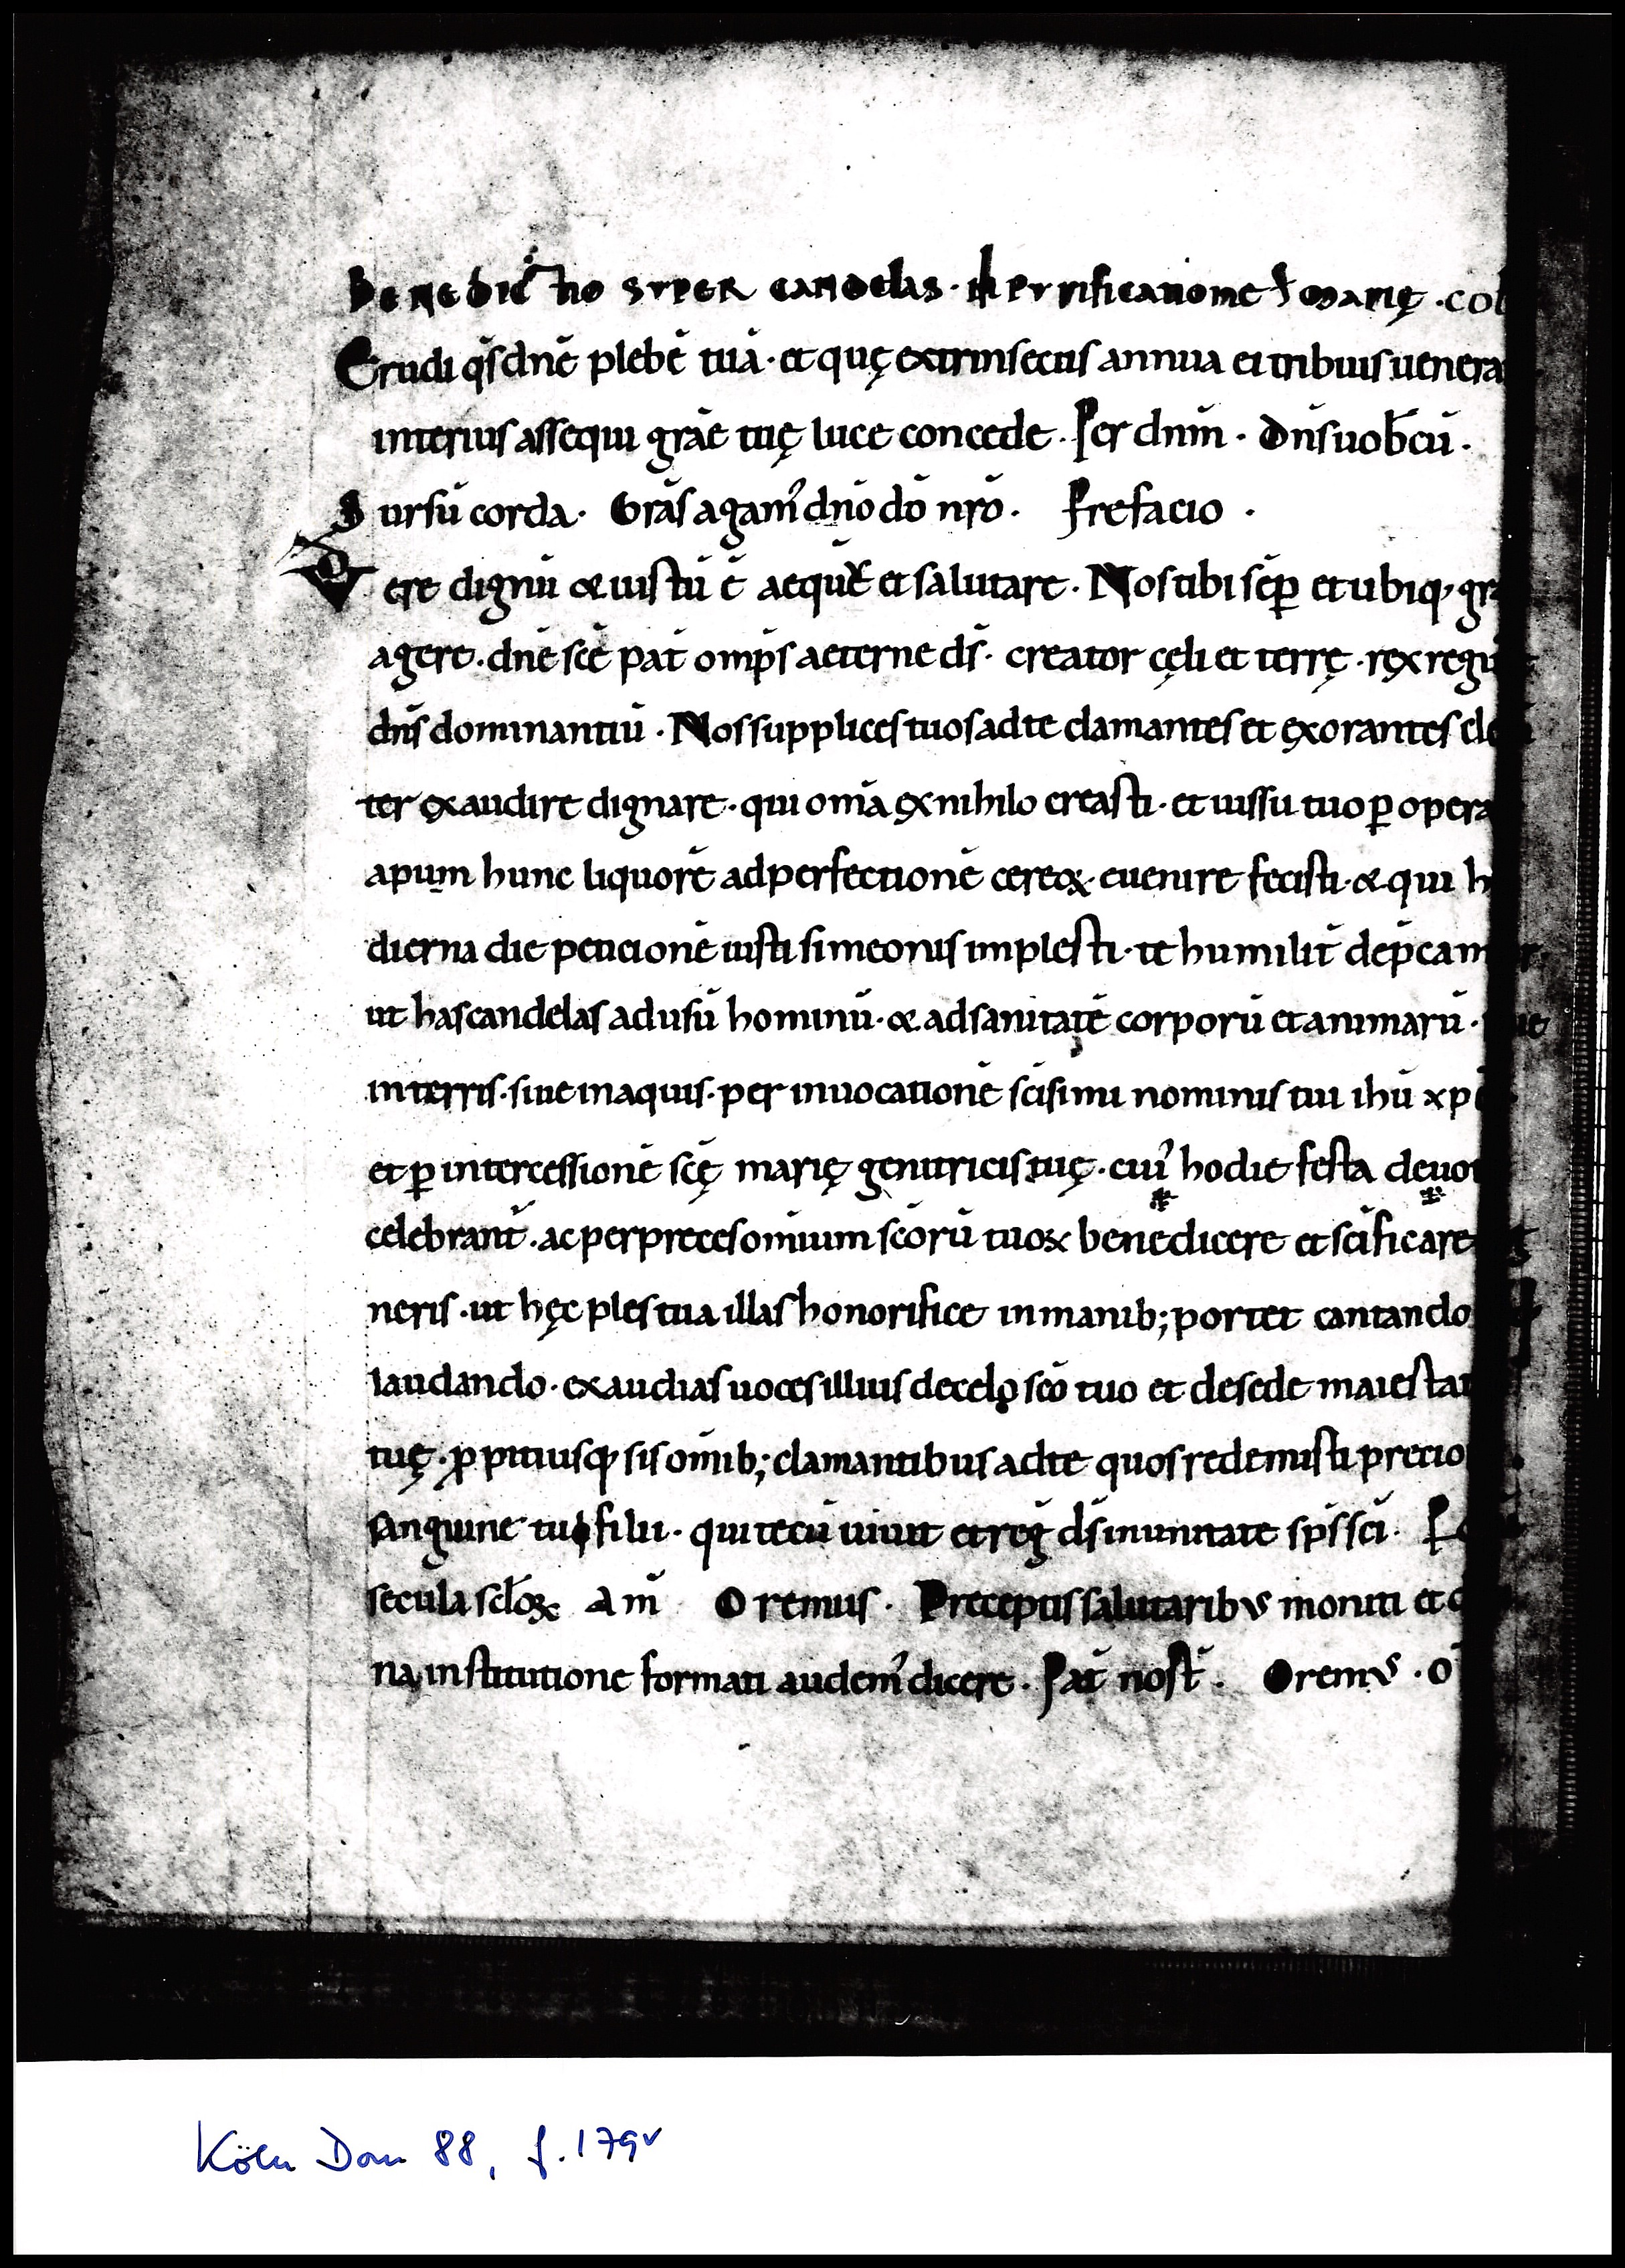 Benedictio super candelas · In purificatione s marię · col
Erudi q̄s dn̄e plebē tuā · et quę extrinsecus annua ei tribuis uenera
interius assequi grāe tuę luce concede · Per dnm̄ · Dn̄s uob̄cū ·
Sursū corda · Grās agam᾿ dn̄o dō nr̄o · Prefacio ·
Vere dignū & iustū ē aequū et salutare · Nos tibi sēp̄ et ubiq, gra
agere · dn̄e scē pat̄ omp̄s aeterne ds̄ · creator cęli et terrę · rex regū
dn̄s dominantiū · Nos supplices tuos ad te clamantes et ęxorantes cle
ter ęxaudire dignare · qui om̄a ęx nihilo creasti · et iussu tuo ꝑ opera
apum hunc liquorē ad perfectionē cereoꝝ · euenire fecisti · & qui h
dierna die peticionē iusti simeonis implesti · te humilit̄ dep̄cam
ut has candelas ad usū hominū · & ad sanitatē corporū et animarū ·
in terris · siue in aquis · per inuocationē sc̄isimi nominis tui ihū xp̄i
et ꝑ intercessionē scę̄ marię genitricis tuę · cui᾿ hodie festa deuot
celebrant̄ · ac per preces omīum sc̄orū tuoꝝ benedicere et sc̄ificare
neris · ut hęc plęs tua illas honorifice in manib; portet cantando
laudando · exaudias uoces illius de celo scō tuo et de sede maiestat
tuę · ꝓpitiusq, sis omīb; clamantibus ad te quos redemisti precio
sanguine tui filii · qui tecū uiuit et reḡ ds̄ in unitate sps̄ sc̄i · Pe
secula sc̄loꝝ Am̄ Oremus · Preceptis salutaribus moniti et d
na institutione formati audem᾿ dicere · Pat̄ nost̄ · Oremus · O
Köln Dom 88, f. 179v